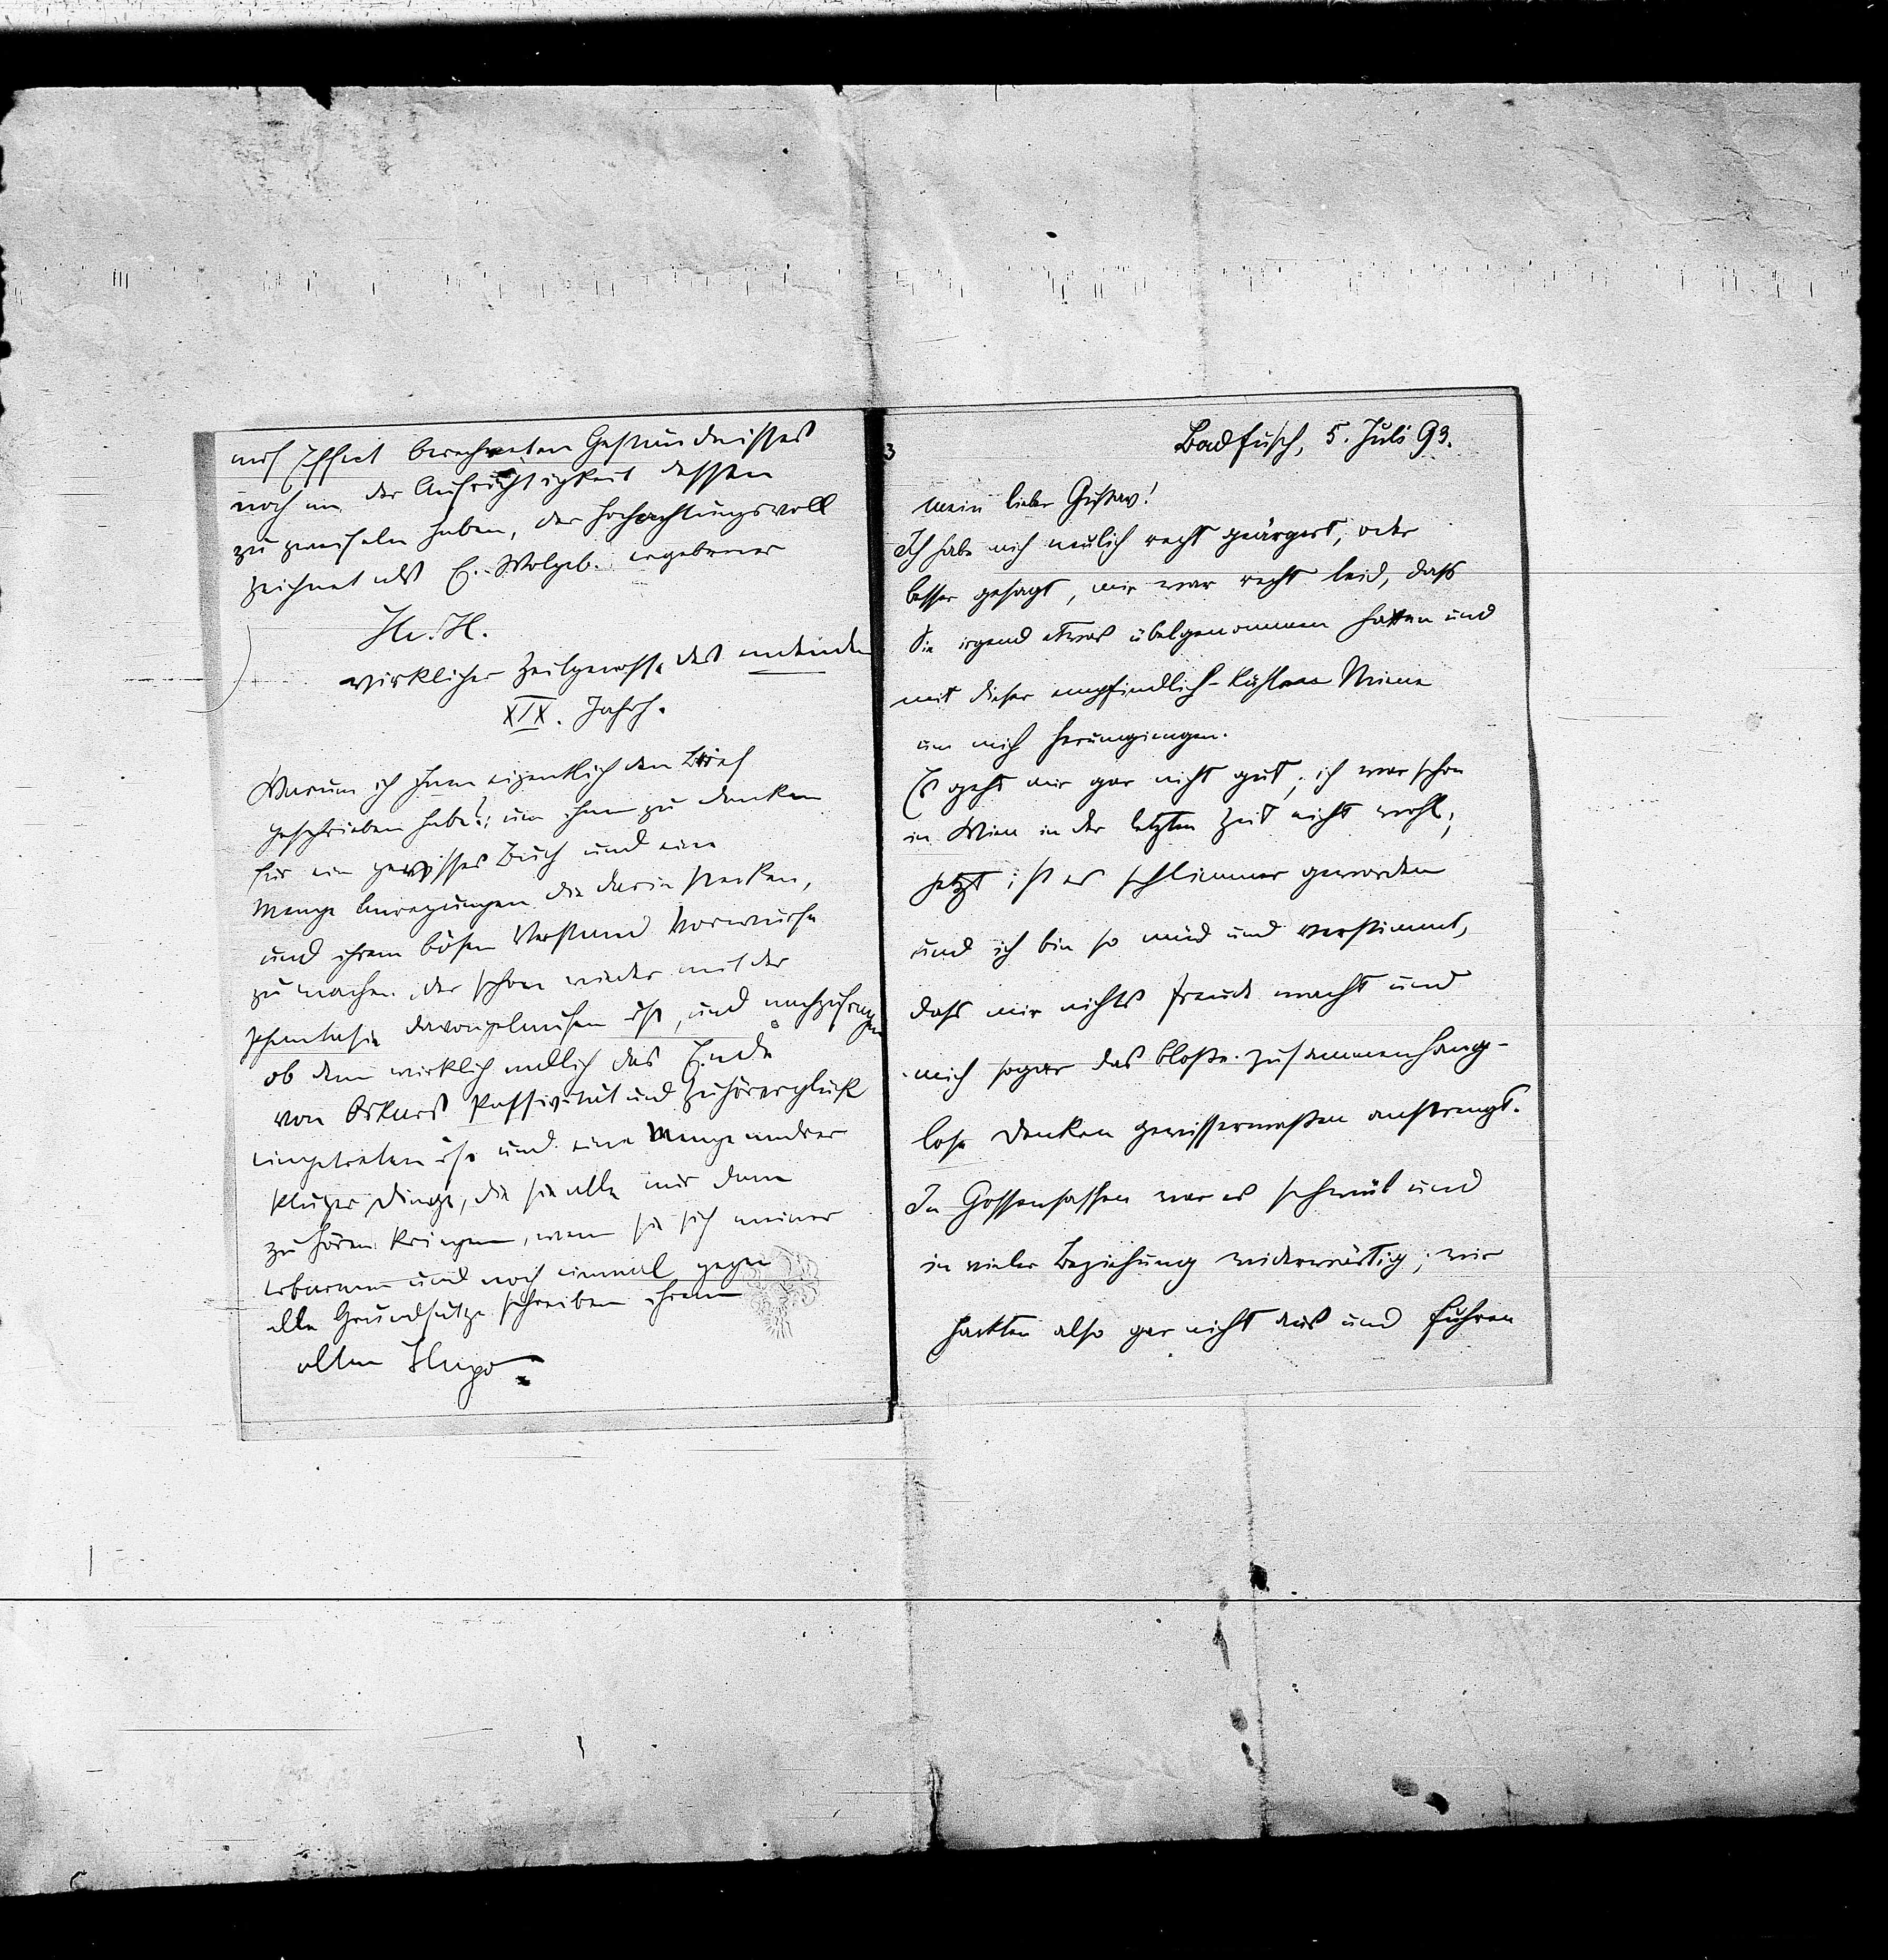 auf Effect berechneten Geständnisses
noch an der Aufrichtigkeit dessen
zu zweifeln haben, der hochachtungsvoll
zeichnet als E. Wolgeb. ergebener
H. H.
wirklicher Zeitgenosse des
XIX. Jahrh.
Warum ich Ihnen eigentlich den Brief
geschrieben habe?; um Ihnen zu danken
für ein gewisses Buch und eine
Menge Anregungen die darin stecken,
und ihrem bösen Verstand Vorwürfe
zu machen, der schon wieder mit der
Phantasie davongelaufen ist, und nachzufragen
ob denn wirklich endlich das Ende
von Oskars Passivität und Zuhörerglück
eingetreten ist und eine Menge andrer
kluger Dinge, die sie alle mir dann
zu hören kriegen, wenn sie sich meiner
erbarmen und noch einmal gegen
alle Grundsätze schreiben ihrem
alten Hugo
3
Bad Fusch, 5. Juli 93.
mein lieber Gustav!
Ich habe mich neulich recht geärgert, oder
besser gesagt, mir war recht leid, dass
Sie irgend etwas übelgenommen hatten und
mit dieser empfindlich-kühlen Miene
um mich herumgingen.
Es geht mir gar nicht gut; ich war schon
in Wien in der letzten Zeit nicht wohl;
jetzt ist es schlimmer geworden
und ich bin so müd und verstimmt,
dass mir nichts Freude macht und
mich sogar das bloße zusammenhang-
lose Denken gewissermaßen anstrengt.
In Gossensassen war es schwül und
in vieler Beziehung widerwärtig; wir
packten also gar nicht aus und fuhren